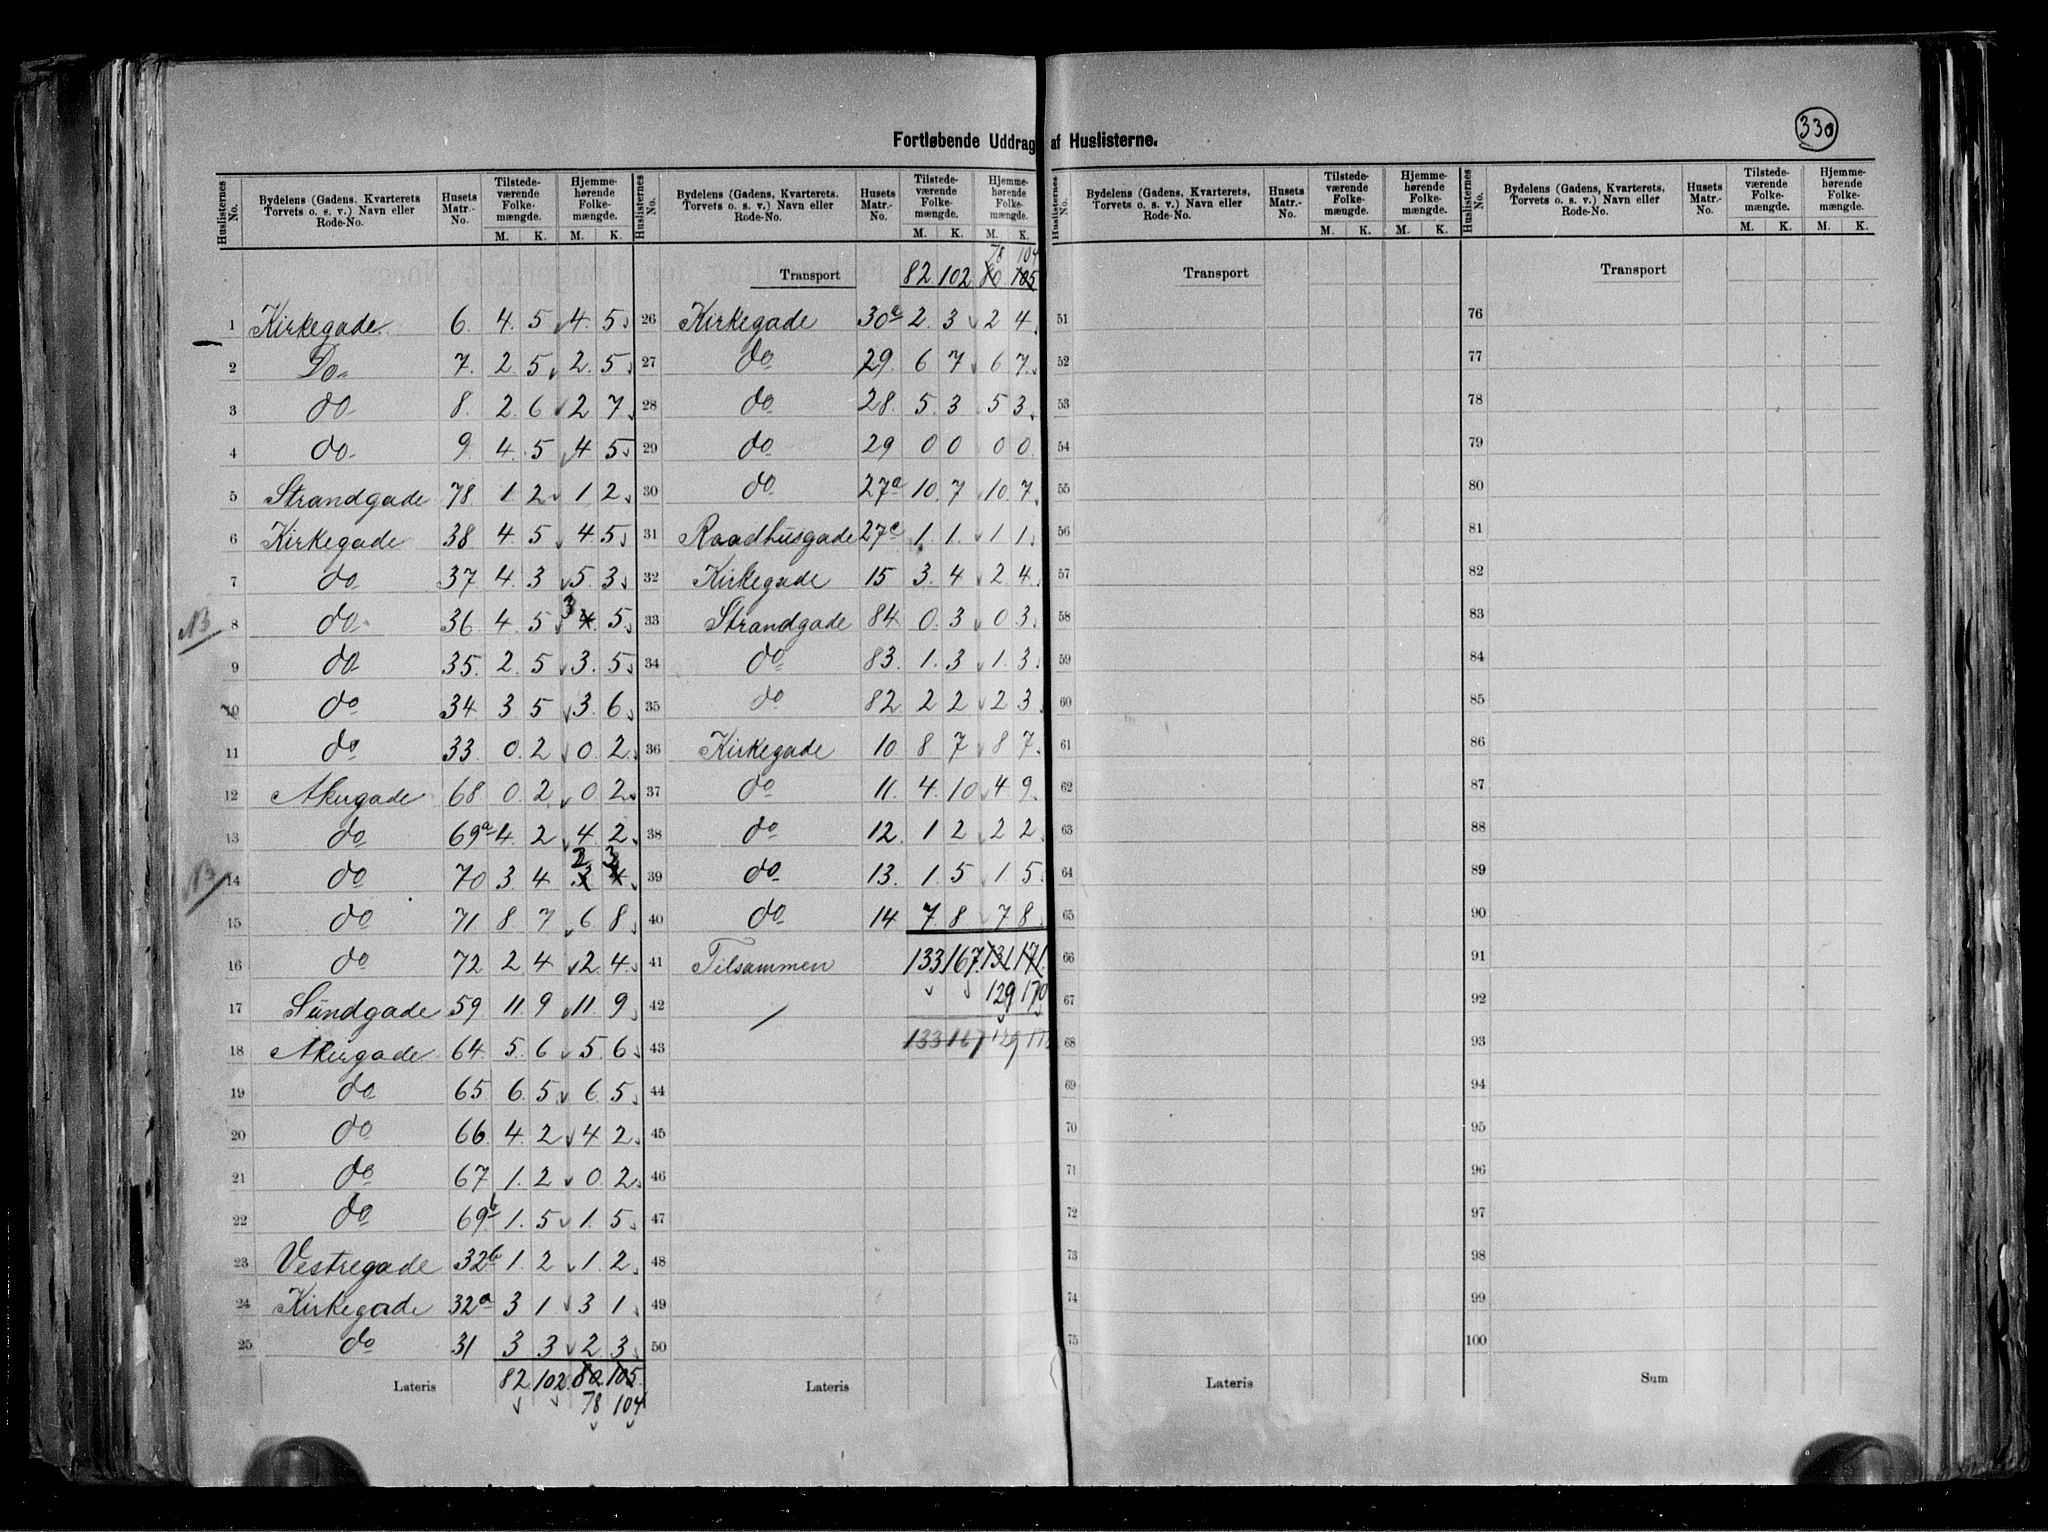 330
Fortløbende Uddrag af Huslisterne.
Huslisternes No. | Bydelens (Gadens, Kvarterets, Torvets o. s. v.) Navn eller Rode-No. | Husets Matr.-No. | Tilstedeværende Folkemængde. M. K. | Hjemmehørende Folkemængde. M. K.
1 Kirkegade 6. 4. 5 4. 5
2 Do 7. 2. 5 2. 5
3 do 8. 2. 6 2 7
4 do 9 4. 5 4 5
5 Strandgade 78 1 2 1 2
6 Kirkegade 38 4 5 4. 5
7 do 37 4. 3 5. 3
NB 8 do 36 4. 5 4 3 5
9 do 35. 2. 5 3. 5
10 do 34 3 5 3. 6
11 do 33. 0. 2 0 2
12 Akergade 68 0. 2 0 2
13 do 69a 4. 2 4. 2
NB 14 do 70 3 4 3 2 4 3
15 do 71. 8 7 6 8
16 do 72 2 4 2. 4
17 Sundgade 59. 11. 9 11. 9
18 Akergade 64. 5. 6 5. 6
19 do 65 6. 5 6. 5
20 do 66 4. 2 4 2
21 do 67 1. 2 0 2
22 do 69b 1. 5 1. 5
23 Vestregade 32b 1. 2 1. 2
24 Kirkegade 32a 3 1 3 1
25 do 31 3 3 2 3
Lateris 82 102 80 105
78 104
Huslisternes No. | Bydelens (Gadens, Kvarterets, Torvets o. s. v.) Navn eller Rode-No. | Husets Matr.-No. | Tilstedeværende Folkemængde. M. K. | Hjemmehørende Folkemængde. M. K.
78 104
Transport 82 102 80 105
26 Kirkegade 30 2. 3 2 4
27 do 29. 6 7 6 7.
28 do 28. 5. 3 5 3
29 do 29 0 0 0 0
30 do 27a 10. 7 10. 7
31 Raadhusgade 27c 1. 1. 1 1
32 Kirkegade 15 3. 4 2. 4
33 Strandgade 84 0. 3 0 3
34 do 83. 1. 3 1. 3
35 do 82 2 2 2 3
36 Kirkegade 10 8 7 8 7
37 do 11. 4. 10 4 9
38 do 12. 1 2 2 2
39 do 13. 1. 5 1 5
40 do 14 7. 8 7 8
41 Tilsammen 133 167 131 171
42 129 170
43 133 167 129
44
45
46
47
48
49
50
Lateris
Huslisternes No. | Bydelens (Gadens, Kvarterets, Torvets o. s. v.) Navn eller Rode-No. | Husets Matr.-No. | Tilstedeværende Folkemængde. M. K. | Hjemmehørende Folkemængde. M. K.
Transport
51
52
53
54
55
56
57
58
59
60
61
62
63
64
65
66
67
68
69
70
71
72
73
74
75
Lateris
Huslisternes No. | Bydelens (Gadens, Kvarterets, Torvets o. s. v.) Navn eller Rode-No. | Husets Matr.-No. | Tilstedeværende Folkemængde. M. K. | Hjemmehørende Folkemængde. M. K.
Transport
76
77
78
79
80
81
82
83
84
85
86
87
88
89
90
91
92
93
94
95
96
97
98
99
100
Sum